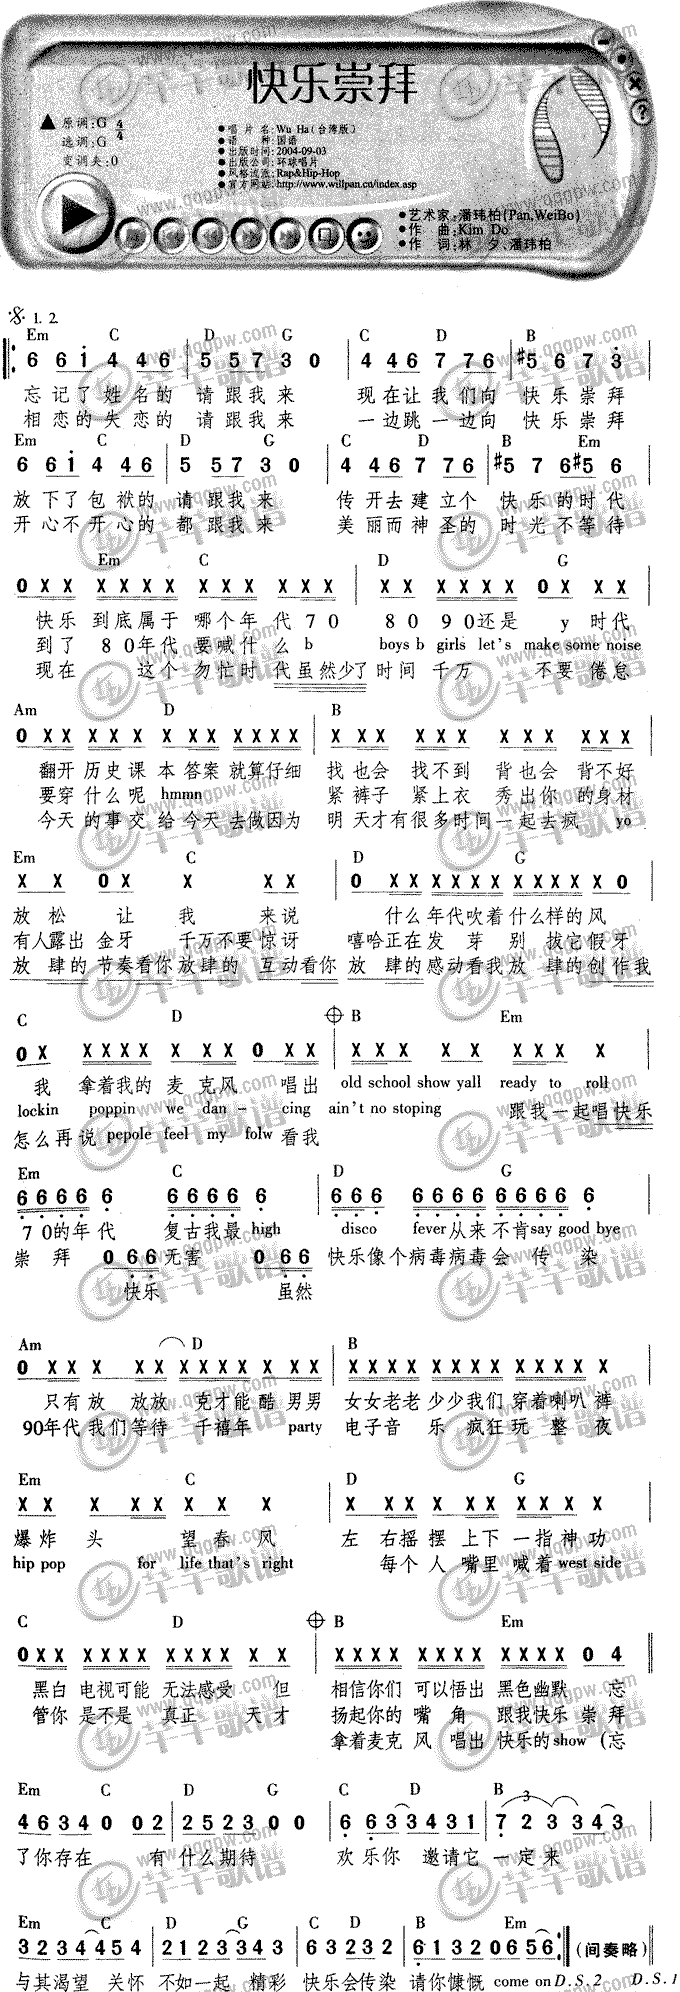 快乐崇拜
原调:G 4/4
选调:G
变调夹:0
●唱 片 名:Wu Ha(台湾版)
●语 种:国语
●出版时间:2004-09-03
●出版公司:环球唱片
●风格流派:Rap&Hip-Hop
●官方网站:http://www.willpan.cn/index.asp
●艺术家:潘玮柏(Pan,WeiBo)
●作 曲:Kim Do
●作 词:林 夕、潘玮柏
1. 2.
Em C D G C D B
6 6 1 4 4 6 | 5 5 5 7 3 0 | 4 4 6 7 7 6 | #5 6 7 3
忘记了 姓名的 请跟我来 现在让我们向 快乐崇拜
相恋的失恋的 请跟我来 一边跳一边向 快乐崇拜
Em C D G C D B Em
6 6 1 4 4 6 | 5 5 5 7 3 0 | 4 4 6 7 7 6 | #5 7 6 #5 6
放下了包袱的 请跟我来 传开去建立个 快乐的时代
开心不开心的 都跟我来 美丽而神圣的 时光不等待
Em C D G
0 X X X X X X X X X X X X | X X X X X X 0 X X
快乐 到底属于 哪个年代 7 0 8 0 9 0还是 y 时代
到了 8 0年代 要喊什么 b boys b girls let's make some noise
现在 这个 匆忙时代虽然少了时间 千万 不要 倦怠
Am D B
翻开 历史课 本 答案 就算仔细 找也会 找不到 背也会 背不好
要穿 什么呢 hmmn 紧裤子 紧上衣 秀出你 的身材
今天 的事 交 给今天 去做因为 明天才有很多时间一起去疯 yo
Em C D G
X X 0 X X X X
放 松 让 我 来说 什么年代吹着什么样的风
有人露出 金牙 千万不要惊讶 嘻哈正在发 芽 别 拔它假牙
放 肆的 节奏看你放肆的 互动看你 放 肆的感动看我放 肆的创作我
C D B Em
0 X X X X X X X X 0 X X | X X X X X X X X X X
我 拿着我的麦 克风 唱出 old school show yall ready to roll
lockin poppin we dan - cing ain't no stoping 跟我一起唱快乐
怎么再说 pepole feel my folw 看我
Em C D G
6 6 6 6 6 6 6 6 6 6 | 6 6 6 6 6 6 6 6 6 6 6 6
7 0的年代 复古我最 high disco fever从来不肯say good bye
崇 拜 0 6 6 无害 0 6 6 快乐像个病毒病毒会 传 染
快乐 虽然
Am D B
只有放 放放 克才能酷男男 女女老老少少我们穿着喇叭裤
90年代我们等待 千禧年 party 电子音 乐 疯狂玩 整 夜
Em C D G
X X X X X X X X | X X X X X X X X X X
爆炸 头 望春风 左 右摇摆上下一指神功
hip pop for life that's right 每个人 嘴里 喊着 west side
C D B Em
0 X X X X X X X X X X X X | X X X X X X X X X X X X 0 4
黑白 电视可能 无法感受 但 相信你们 可以悟出 黑色幽默 忘
管你 是不是 真正 天才 扬起你的 嘴 角 跟我快乐 崇 拜
拿着麦克 风 唱出 快乐的show (忘
Em C D G C D B
4 6 3 4 0 0 2 | 2 5 2 3 0 0 | 6 6 3 3 4 3 1 | 7 2 3 3 4 3
了你存在 有 什么期待 欢 乐你 邀请它 一定来
Em C D G C D B Em
3 2 3 4 4 5 4 | 2 1 2 3 3 4 3 | 6 3 2 3 2 | 6 1 3 2 0 6 5 6 (间奏略)
与其渴望 关怀 不如一起 精彩 快乐会传染 请你慷慨 come on D.S.2 D.S.1